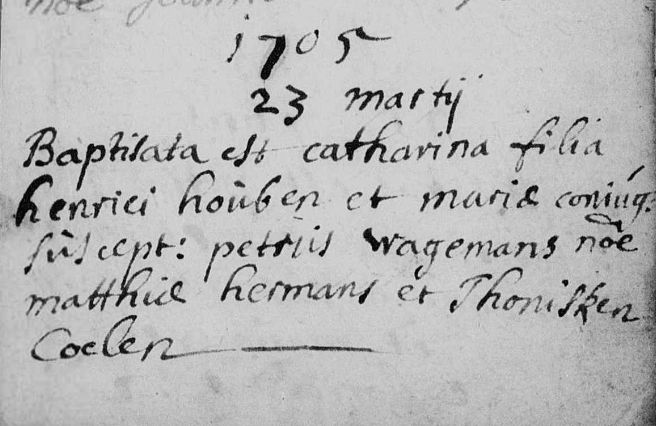 noe
1705
23 martij
Baptisata est catharina filia
henrici houben et mariæ coniug:
suscept: petrus wagemans noe
matthiæ hermans et Thonisken
Coelen